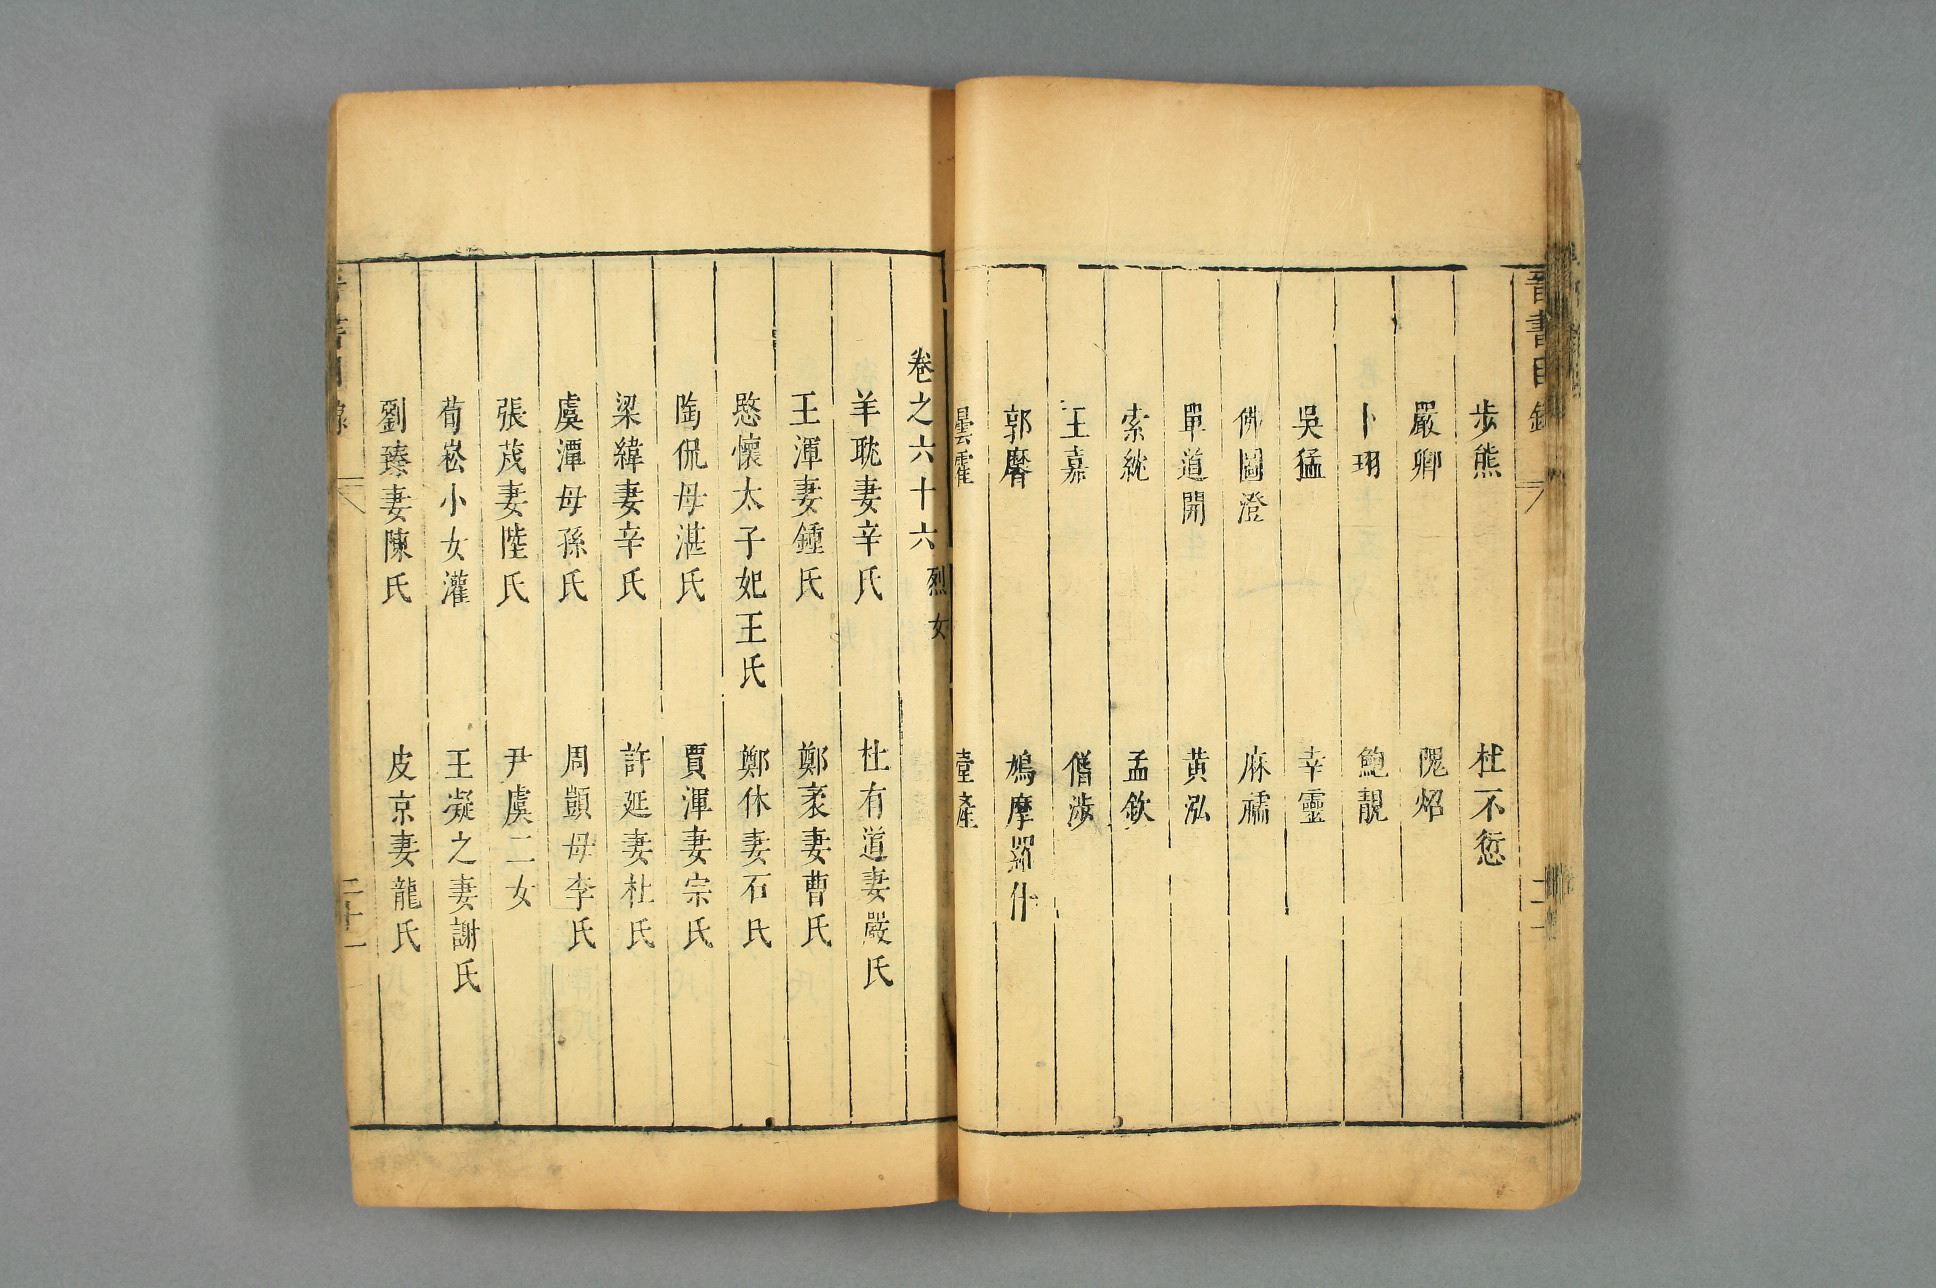 晉書目錄
二十一
步熊 杜不愆
嚴卿 隗炤
卜珝 鮑靚
吳猛 幸靈
佛圖澄 麻襦
單道開 黃泓
索紞 孟欽
王嘉 僭涉
郭黁 鳩摩羅什
曇霍 臺產
卷之六十六 烈女
羊耽妻辛氏 杜有道妻嚴氏
王渾妻鍾氏 鄭袤妻曹氏
愍懷太子妃王氏 鄭休妻石氏
陶侃母湛氏 賈渾妻宗氏
梁緯妻辛氏 許延妻杜氏
虞潭母孫氏 周顗母李氏
張茂妻陸氏 尹虞二女
荀崧小女灌 王凝之妻謝氏
劉臻妻陳氏 皮京妻龍氏
晉書目錄
二十一